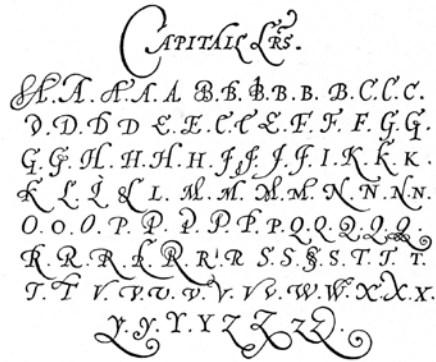 CAPITALL LRS.
A. A. A. A. A B. B. B. B. B. B. C. C. C.
D. D. D D E. E. C. E E. F. F. F. G. G.
G. G. H. H. H. H. J. J. J. J. I. K K K.
K L. L L L. M. M. M. M. N. N. N.
O. O. O. P. P. P. P. P. P. Q. Q. Q. Q. Q.
R. R. R. R. R. R. R S. S. S. S. T. T. T.
T. T V. V. V. V. V. V. V. W. W. X. X. X.
Y. Y. Y. Y Z Z. Z Z.